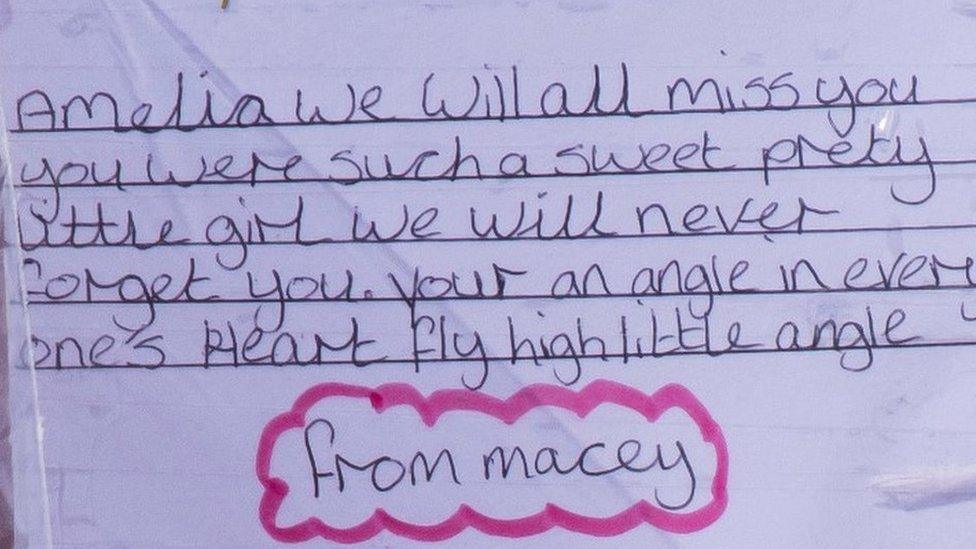 Amelia we will all miss you
you were such a sweet prety
little girl we will never
forget you. your an angle in every
one's Heart fly high little angle
from macey